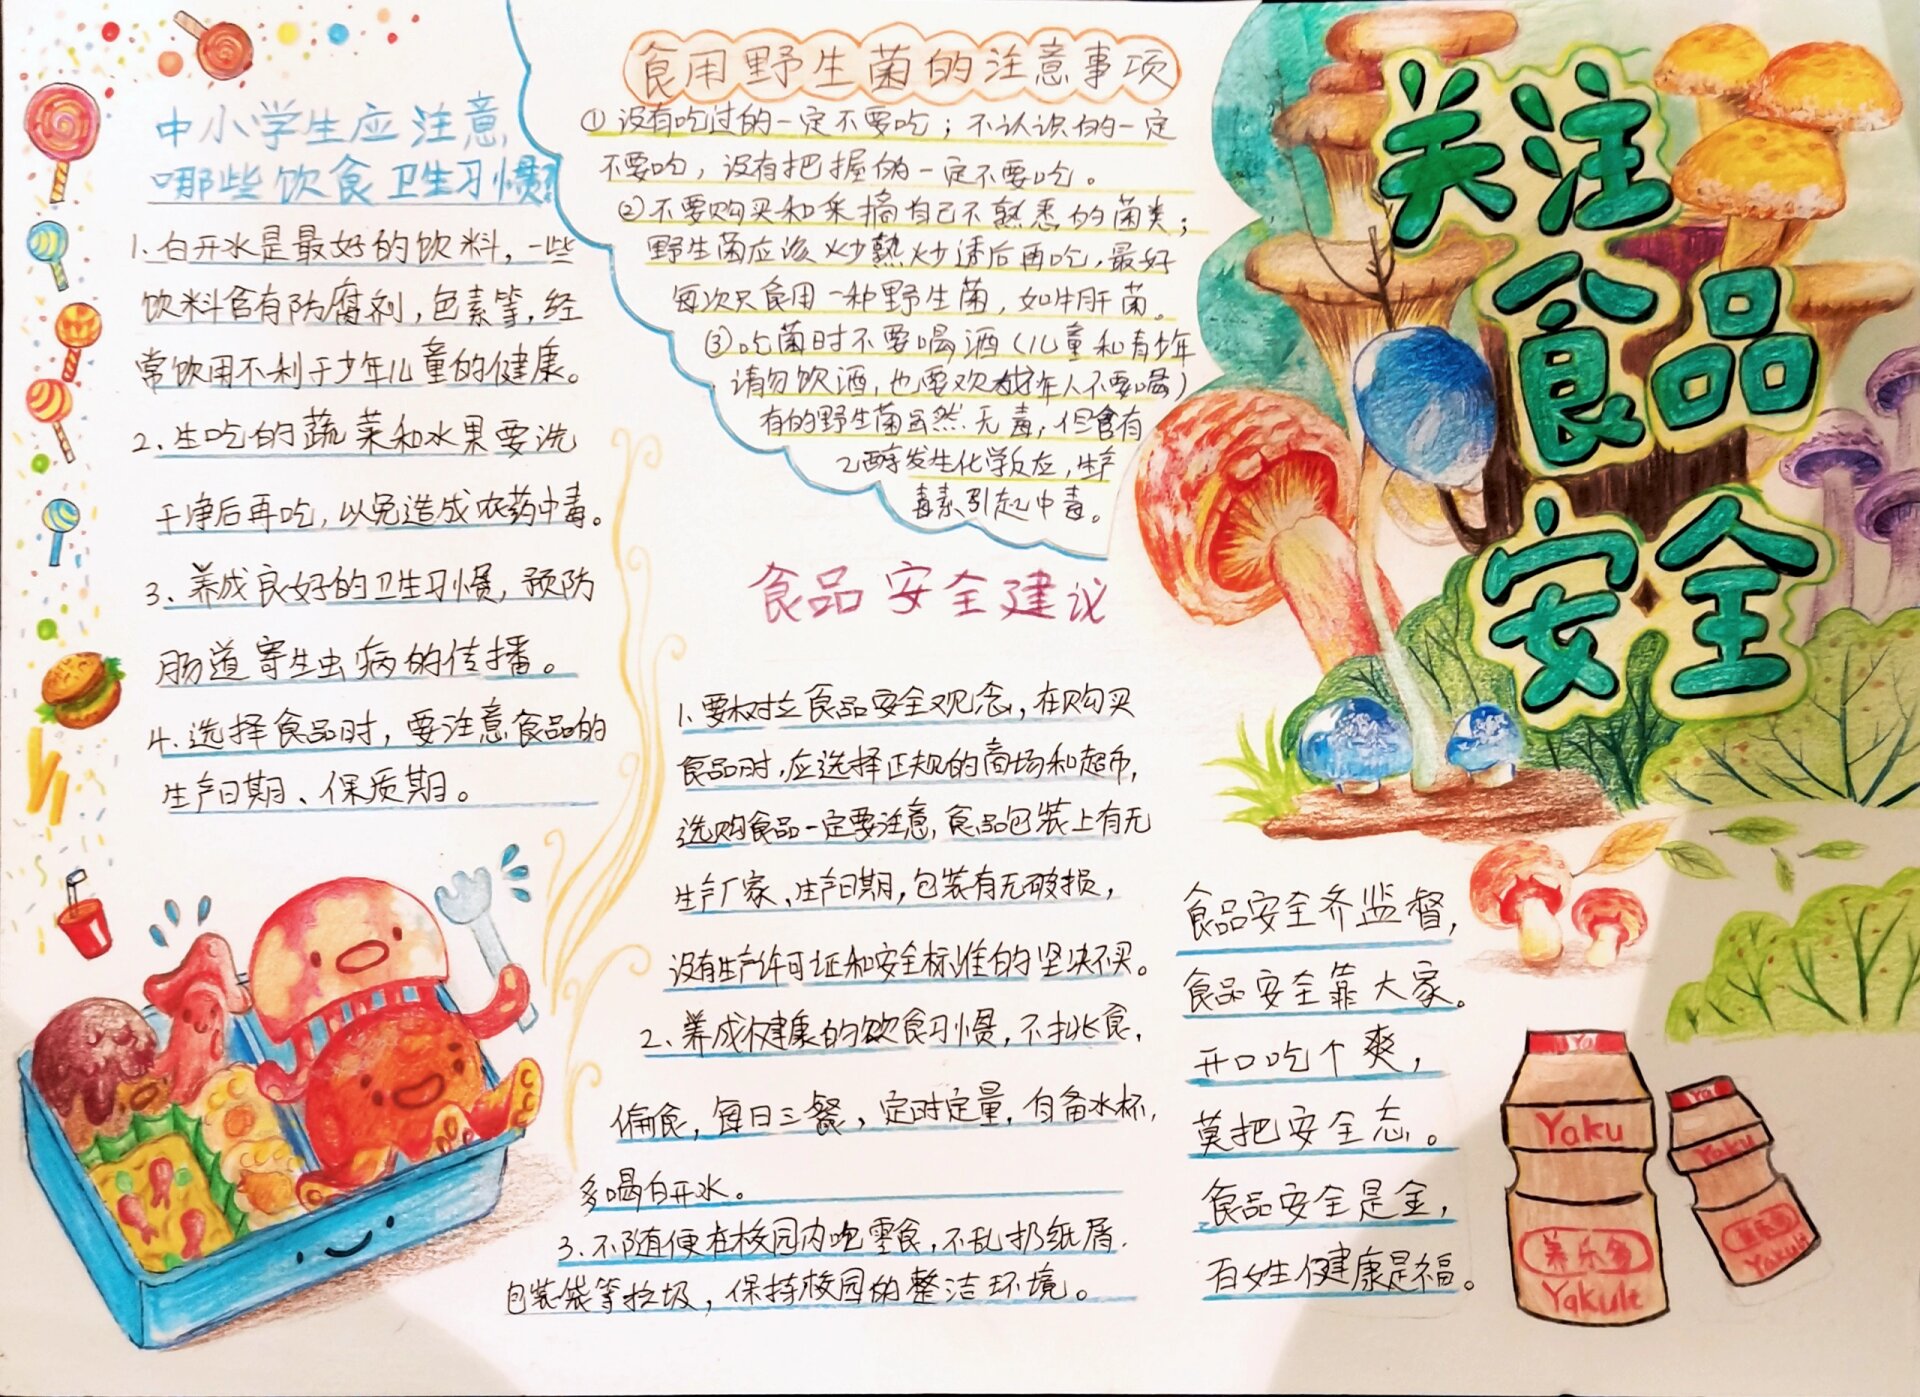 关注
食品
安全
中小学生应注意
哪些饮食卫生习惯?
1.白开水是最好的饮料，一些
饮料含有防腐剂，色素等，经
常饮用不利于少年儿童的健康。
2.生吃的蔬菜和水果要洗
干净后再吃，以免造成农药中毒。
3.养成良好的卫生习惯，预防
肠道寄生虫病的传播。
4.选择食品时，要注意食品的
生产日期、保质期。
食用野生菌的注意事项
①没有吃过的一定不要吃；不认识的一定
不要吃，没有把握的一定不要吃。
②不要购买和采摘自己不熟悉的菌类；
野生菌应该炒熟炒透后再吃，最好
每次只食用一种野生菌，如牛肝菌。
③吃菌时不要喝酒（儿童和青少年
请勿饮酒，也要劝成年人不要喝）
有的野生菌虽然无毒，但含有
乙醇发生化学反应，生产
毒素引起中毒。
食品安全建议
1.要树立食品安全观念，在购买
食品时，应选择正规的商场和超市，
选购食品一定要注意，食品包装上有无
生产厂家、生产日期，包装有无破损，
没有生产许可证和安全标准的坚决不买。
2.养成健康的饮食习惯，不挑食，
偏食，每日三餐，定时定量，自备水杯，
多喝白开水。
3.不随便在校园内吃零食，不乱扔纸屑．
包装袋等垃圾，保持校园的整洁环境。
食品安全齐监督，
食品安全靠大家。
开口吃个爽，
莫把安全忘。
食品安全是金，
百姓健康是福。
Ya
Yaku
养乐多
Yakult
Yaku
养乐多
Yakult